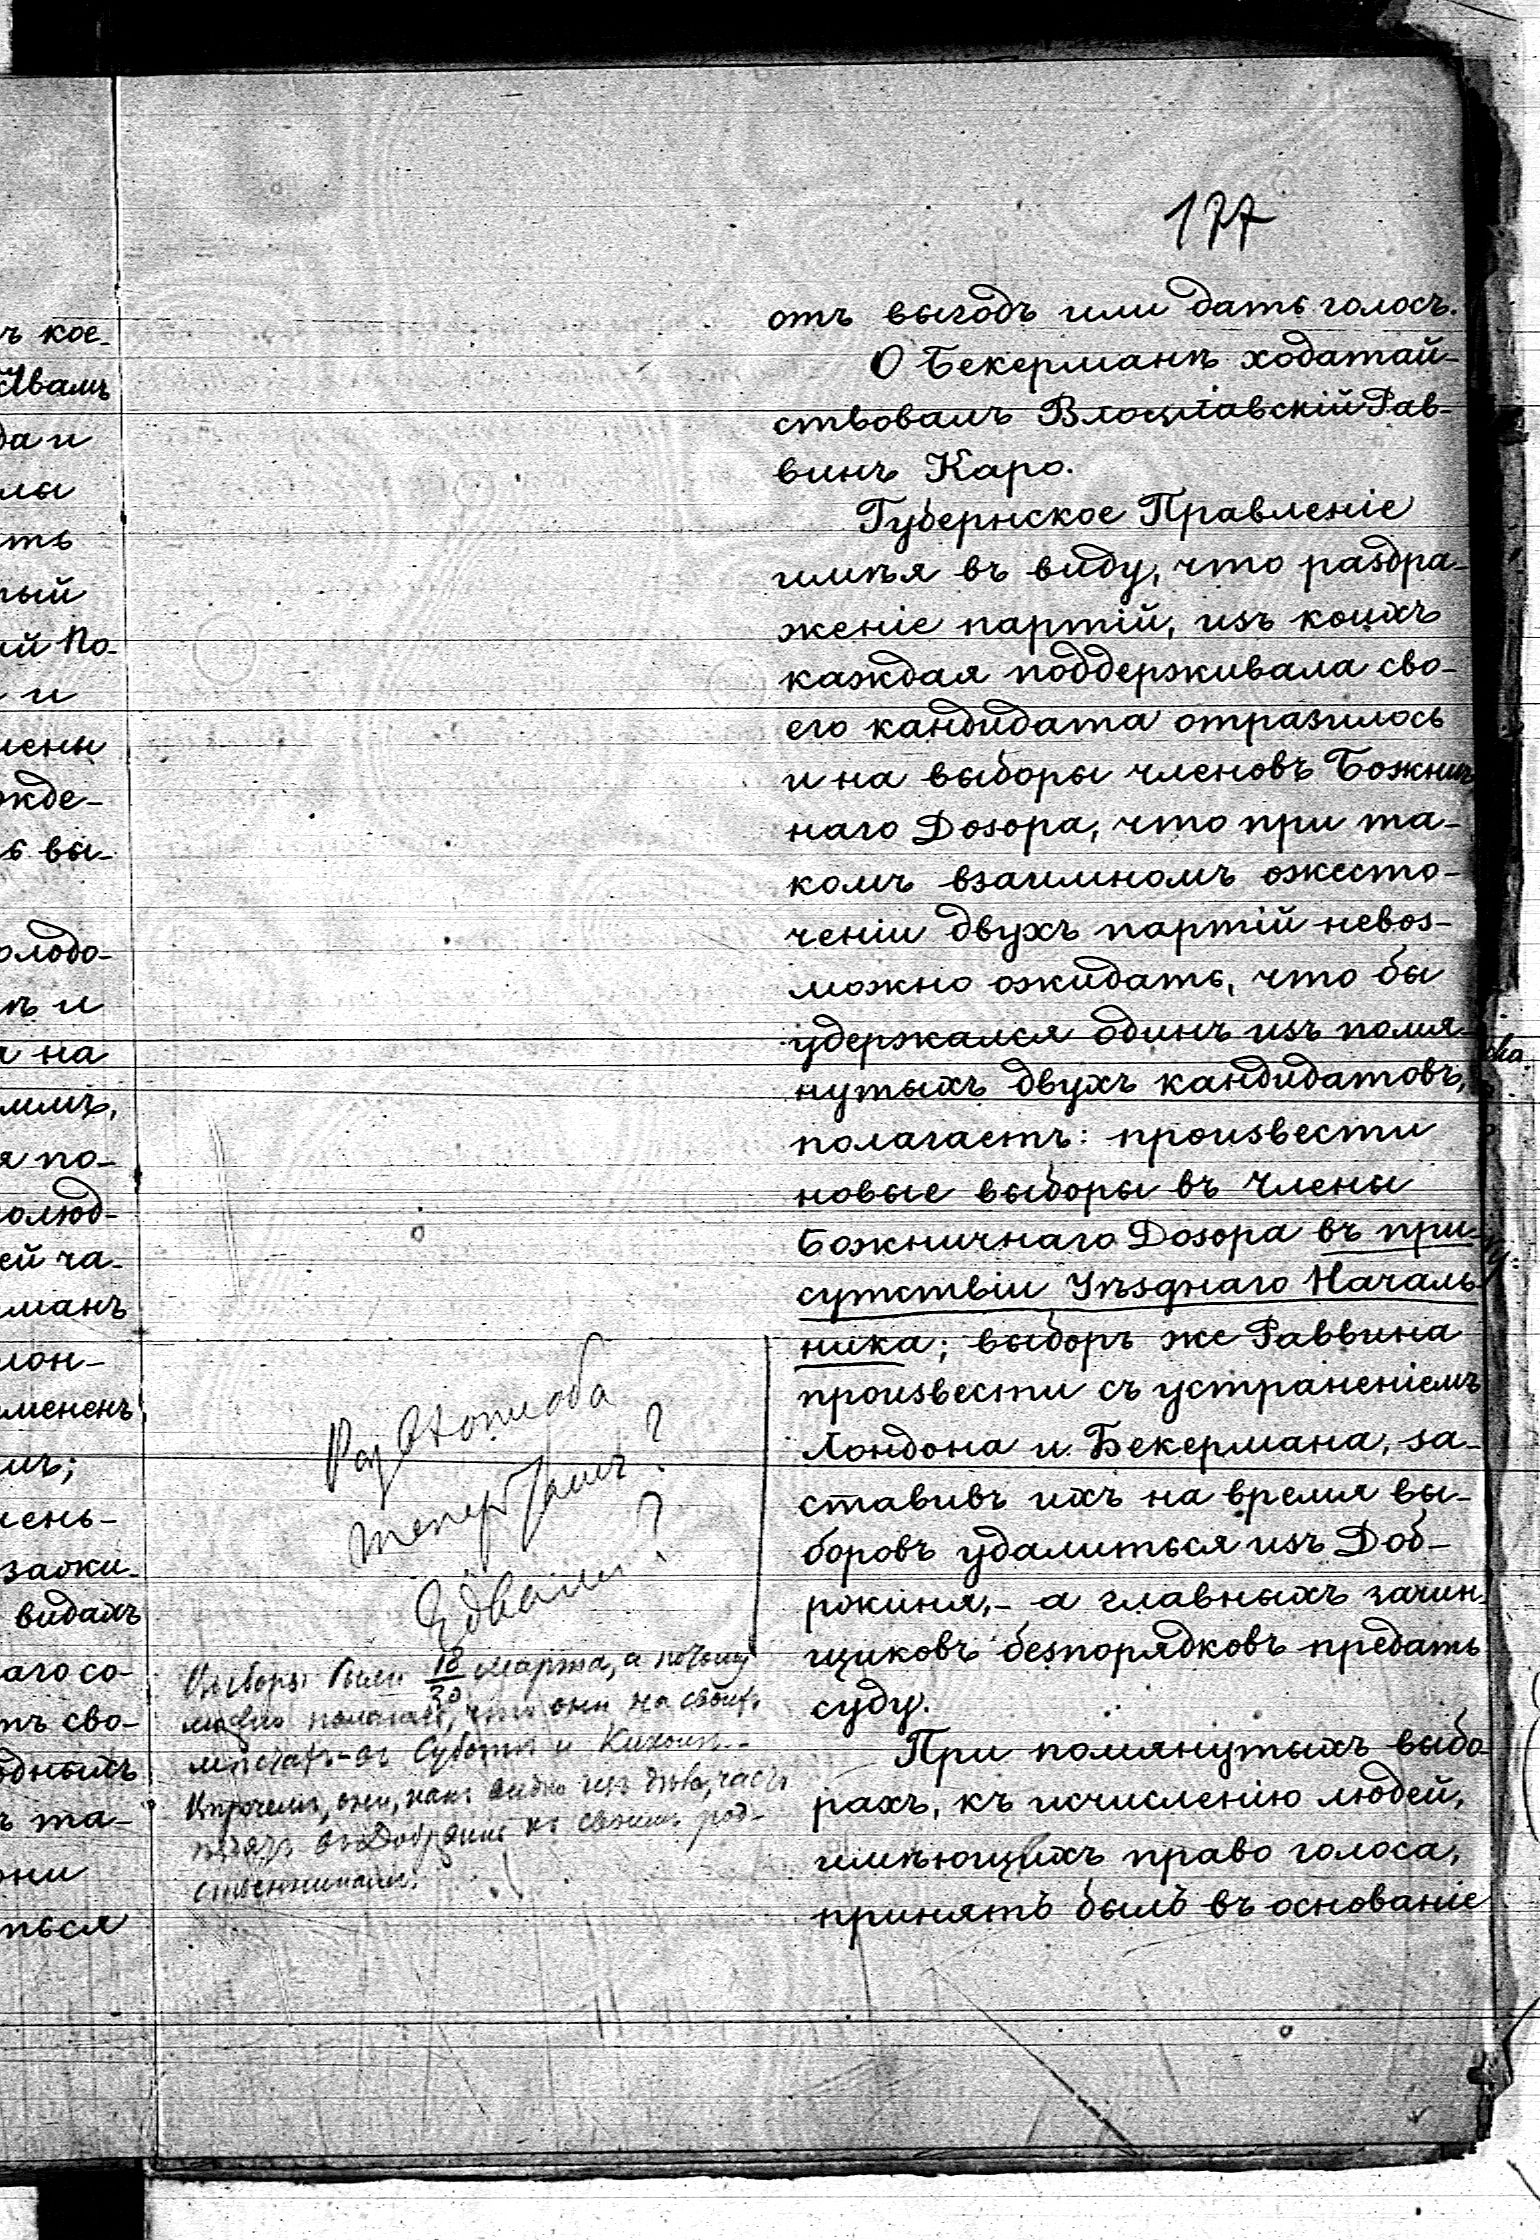 177
отъ выгодъ или дать голосъ.
О Бекерманѣ ходатай-
ствовалъ Влоцлавскій Рав-
винъ Каро.
Губернское Правленіе
имѣя въ виду, что раздра-
женіе партій, изъ коихъ
каждая поддерживала сво-
его кандидата отразилось
и на выборы членовъ Божнич
наго Дозора, что при та-
комъ взаимномъ ожесто-
ченіи двухъ партій невоз-
можно ожидать, что бы
удержался одинъ изъ помя-
нутыхъ двухъ кандидатовъ,
полагаетъ: произвести
новые выборы въ члены
Божничнаго Дозора въ при-
сутствіи Уѣзднаго Началь-
ника; выборъ же Раввина
произвести съ устраненіемъ
Лондона и Бекермана, за-
ставивъ ихъ на время вы-
боровъ удалиться изъ Доб-
ржиня,- а главныхъ зачин-
щиковъ безпорядковъ предать
суду.
При помянутыхъ выбо-
рахъ, къ исчисленію людей,
имѣющихъ право голоса,
принятъ былъ въ основаніе
оба
теперь тамъ?
Едвали?
Выборы были 18/30 марта, а потому
можно полагать, что они на своихъ
мѣстахъ - въ Суботы и Киколѣ.
Впрочемъ, они, какъ видно изъ дѣла,
въ Добржинь къ своимъ род-
ственникамъ.
ъ кое-
да и
лы
ть
ый
ій По-
и
жде-
вы-
олодо-
ѣ и
на
я по-
олюд-
ей ча-
манъ
лон-
мененъ
мъ;
ень-
видахъ
аго со-
тъ сво-
одныхъ
ъ та-
они
ться